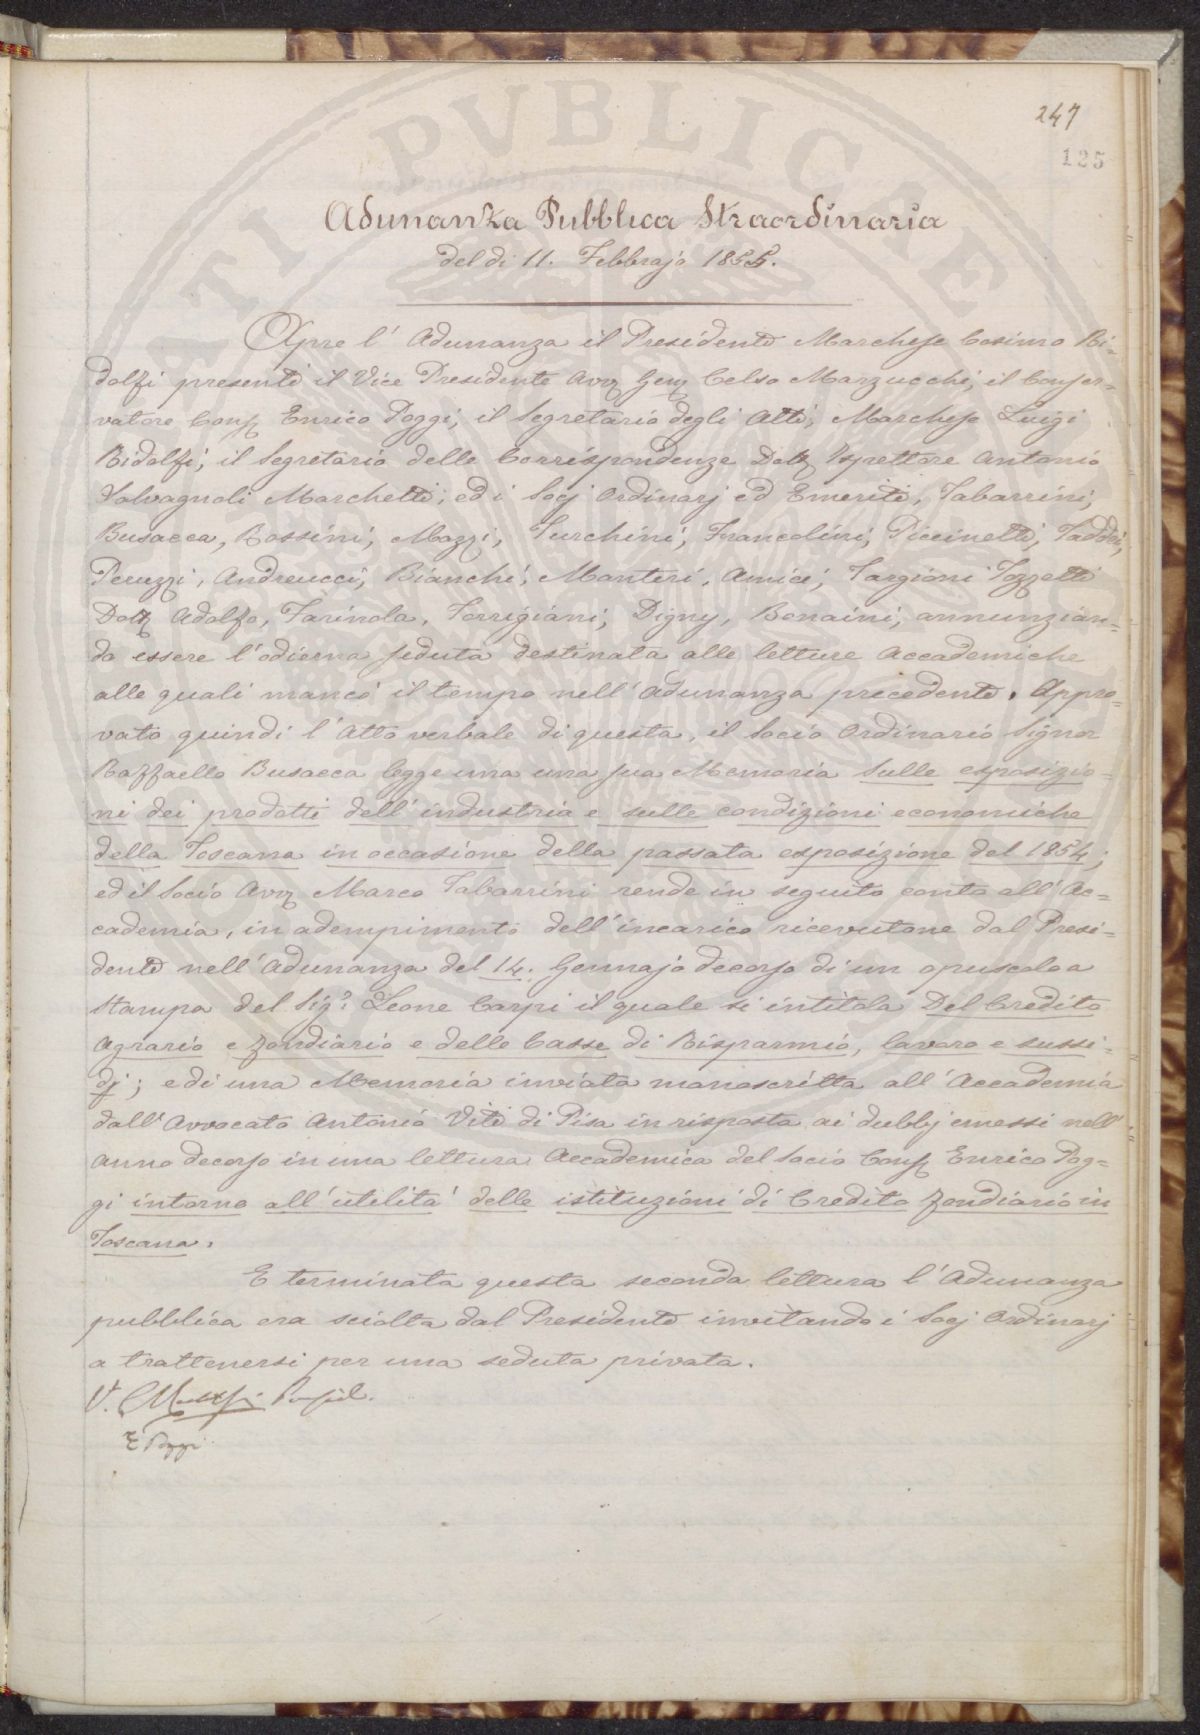 247
125
Adunanza Pubblica Straordinaria
del dì 11. Febbrajo 1855.
Apre l'Adunanza il Presidente Marchese Cosimo Ri=
dolfi presente il Vice Presidente Avv Gen Celso Marzucchi, il Conser=
vatore Cons Enrico Poggi, il Segretario degli Atti, Marchese Luigi
Ridolfi, il Segretario delle Corrispondenze Dott Ispettore Antonio
Salvagnoli Marchetti, ed i Socj Ordinarj ed Emeriti, Tabarrini,
Busacca, Rossini, Mazzi, Turchini, Francolini, Piccinetti, Taddei,
Peruzzi, Andreucci, Bianchi, Manteri, Amici, Targioni Tozzetti
Dott Adolfo, Farinola, Torrigiani, Digny, Bonaini, annunzian=
do essere l'odierna seduta destinata alle letture Accademiche
alle quali mancò il tempo nell'Adunanza precedente. Appro=
vato quindi l'Atto verbale di questa, il Socio Ordinario Signor
Raffaello Busacca legge una una sua Memoria Sulle esposizio=
ni dei prodotti dell'industria e sulle condizioni economiche
della Toscana in occasione della passata esposizione del 1854;
ed il Socio Avv Marco Tabarrini rende in seguito conto all'Ac=
cademia, in adempimento dell'incarico ricevutone dal Presi=
dente nell'Adunanza del 14. Gennajo decorso di un opuscolo a
stampa del Sig.r Leone Carpi il quale si intitola Del Credito
Agrario e fondiario e delle Casse di Risparmio, lavoro e sussi=
dj; e di una Memoria inviata manoscritta all'Accademia
dall'Avvocato Antonio Viti di Pisa in risposta ai dubbj emessi nell'
anno decorso in una lettura Accademica del Socio Cons Enrico Pog=
gi intorno all'utilità delle istituzioni di Credito fondiario in
Toscana.
E terminata questa seconda lettura l'Adunanza
pubblica era sciolta dal Presidente invitando i Socj Ordinarj
a trattenersi per una seduta privata.
V.
E Poggi